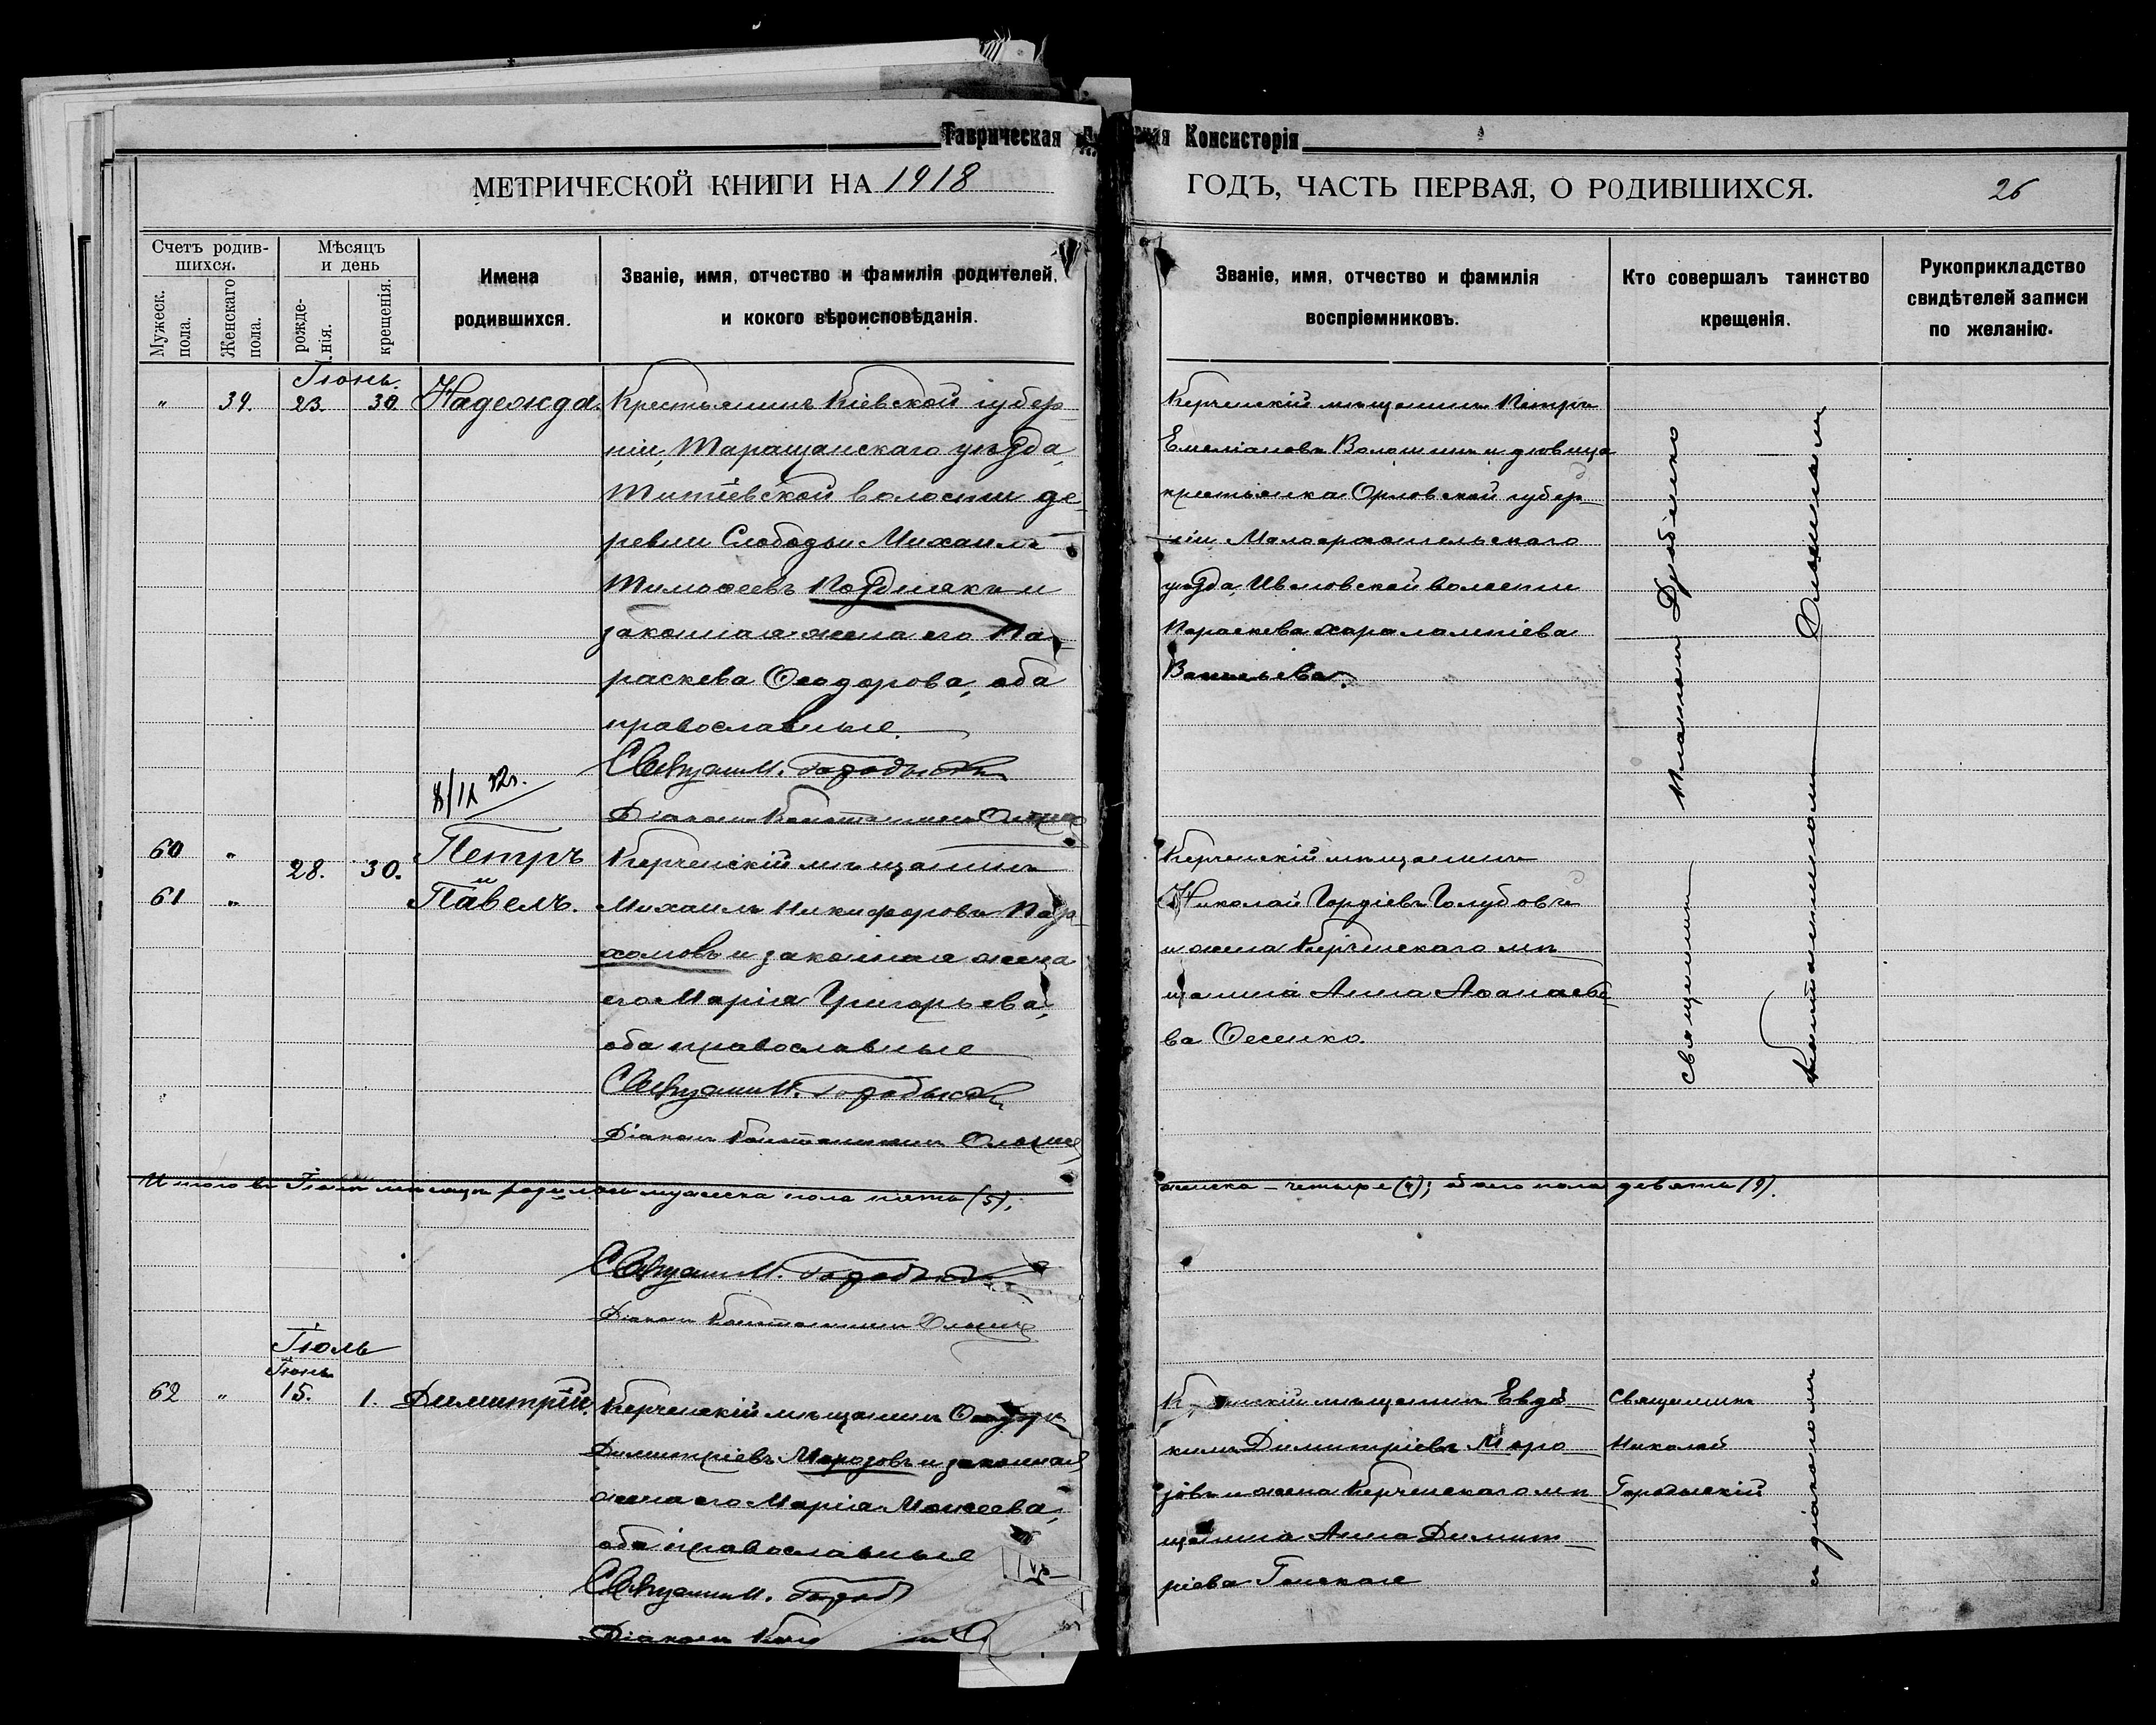 Таврическая Консисторія
МЕТРИЧЕСКОЙ КНИГИ НА 1918
ГОДЪ, ЧАСТЬ ПЕРВАЯ, О РОДИВШИХСЯ.
26
Счетъ родив-
шихся.
Мужеск.
пола.
Женскаго
пола.
Мѣсяцъ
и день
рожде-
нія.
крещенія.
Имена
родившихся.
Званіе, имя, отчество и фамилія родителей,
и кокого вѣроисповѣданія.
Званіе, имя, отчество и фамилія
воспріемниковъ.
Кто совершалъ таинство
крещенія.
Рукоприкладство
свидѣтелей записи
по желанію.
Іюнь.
" 39. 23. 30. Надежда.
Крестьянинъ Кіевской губер-
ніи, Таращанскаго уѣзда,
Титіевской волости де-
ревни Слободы Михаилъ
Тимоѳеевъ Позднякъ и
законная жена его Па-
раскева Ѳеодорова, оба
православные.
Священ. Н. Городыскій
Діаконъ Константинъ
Керченскій мѣщанинъ Петръ
Емеліановъ Волошинъ и дѣвица
крестьянка Орловской губер-
ніи Малоархангельскаго
уѣзда, волости
Параскева Харалампіева
Васильева.
священник
Дробленко
Константином
60 " 28. 30. Петръ
и
61 " Павелъ.
Керченскій мѣщанинъ
Михаилъ Никифоровъ Пар-
хомовъ и законная жена
его Марія Григорьева,
оба православные
Священ. Н. Городыскій
Діаконъ Константинъ
Керченскій мѣщанинъ
Николай Гордіевъ Голубовъ
и жена Керченскаго мѣ-
щанина Анна Аѳанасье-
ва Осенко.
Итого въ Іюнѣ мѣсяцѣ родилось мужеска пола пять (5),
женска – четыре (4); обоего пола девять (9).
Священ. Н. Городыскій
Діаконъ Константинъ
Іюль
Іюнь
62 " 15. 1. Димитрій.
Керченскій мѣщанинъ Ѳеодоръ
Димитріевъ Морозовъ и законная
жена его Марія Моисеева,
оба православные
Священ. Н. Город
Діаконъ
мѣщанинъ Евдо-
кимъ Димитріевъ Моро-
зовъ и жена Керченскаго мѣ-
щанина Анна Димит-
ріева
Священникъ
Николай
Городыскій
и діакономъ